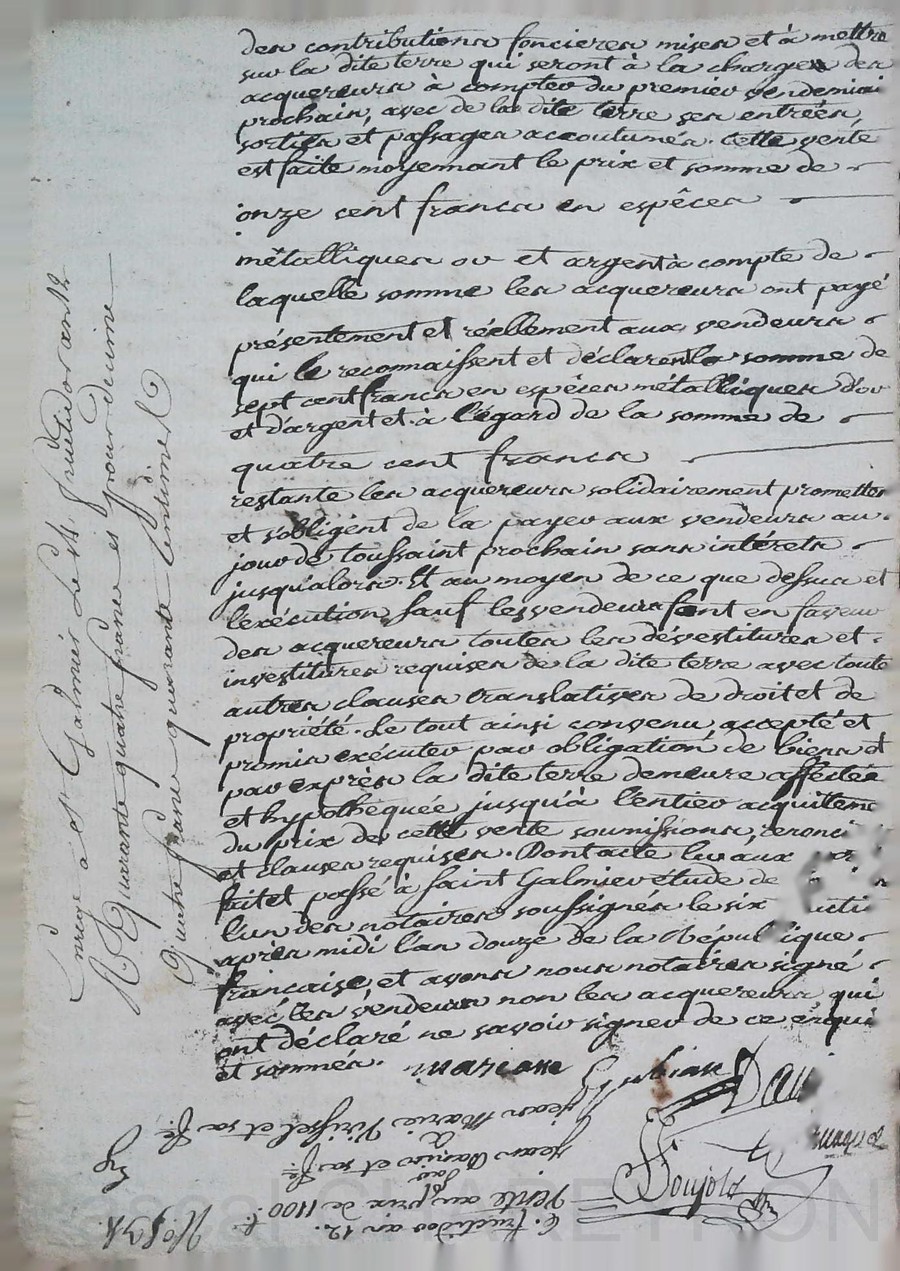 des contributions foncieres mises et à mettre
sur la dite terre qui seront à la charge des
acquereurs à compter du premier vendemiai
prochain, avec de la dite terre ses entrées,
sorties et passages accoutumés. cette vente
est faite moyennant le prix et somme de
onze cent francs en espêces
métalliques or et argent à compte de
laquelle somme les acquereurs ont payé
présentement et réellement aux vendeurs
qui le reconnaissent et déclarent la somme de
sept cent francs en espêces métalliques d'or
et d'argent et à l'égard de la somme de
quatre cent francs
restante les acquereurs solidairement promettent
et s'obligent de la payer aux vendeurs au
jour de toussaint prochain sans intérets
jusqu'alors. Et au moyen de ce que dessus et
l'exécution sauf les vendeurs font en faveur
des acquereurs toutes les dévestitures et
investitures requises de la dite terre avec toute
autres clauses translatives de droit et de
propriété. Le tout ainsi convenu, accepté et
promis exécuter par obligation de biens et
par exprès la dite terre demeure affectée
et hypothéquée jusqu'à l'entier acquitteme
du prix de cette vente soumissions, renonci
et clauses requises. Dont acte lu aux
fait et passé à saint Galmier étude de
l'un des notaires soussignés le six
après midi l'an douze de la République
française et avons nous notaires signé
avec les vendeurs non les acquereurs qui
ont déclaré ne savoir signer de ce enqui
et sommés.
mariane
Soujols
Enregé a St Galmier Le 14 fructidor an 12
R Quarante quatre francs et pour decime
Quatre franc quarante Centimes
6. fructidor an 12.
Vente au prix de 1100 f.
par
jean et sa fe
à
jean Marie et sa fe